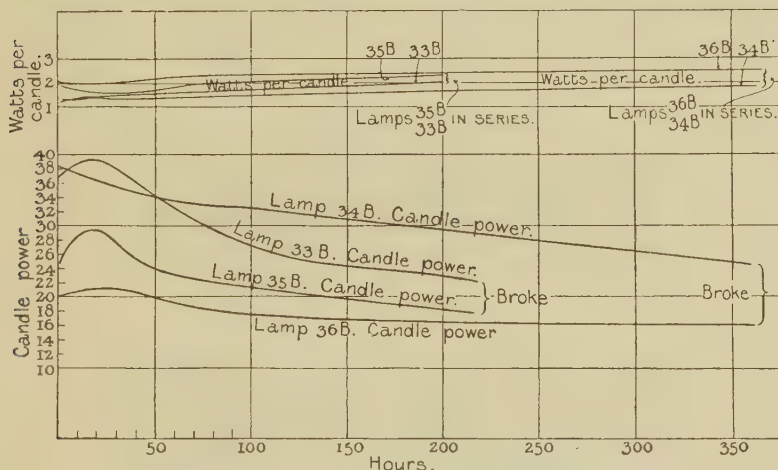 Watts per
candle.
3
2
1
35B 33B
36B 34B
Watts per candle
Watts per candle.
Lamps 35B
33B IN SERIES.
Lamps 36B
34B IN SERIES.
Candle power
40
38
36
34
32
30
28
26
24
22
20
18
16
14
12
10
Lamp 34B. Candle power.
Lamp 33B. Candle power.
Lamp 35B. Candle power.
Broke
Broke
Lamp 36B. Candle power
50 100 150 200 250 300 350
Hours.